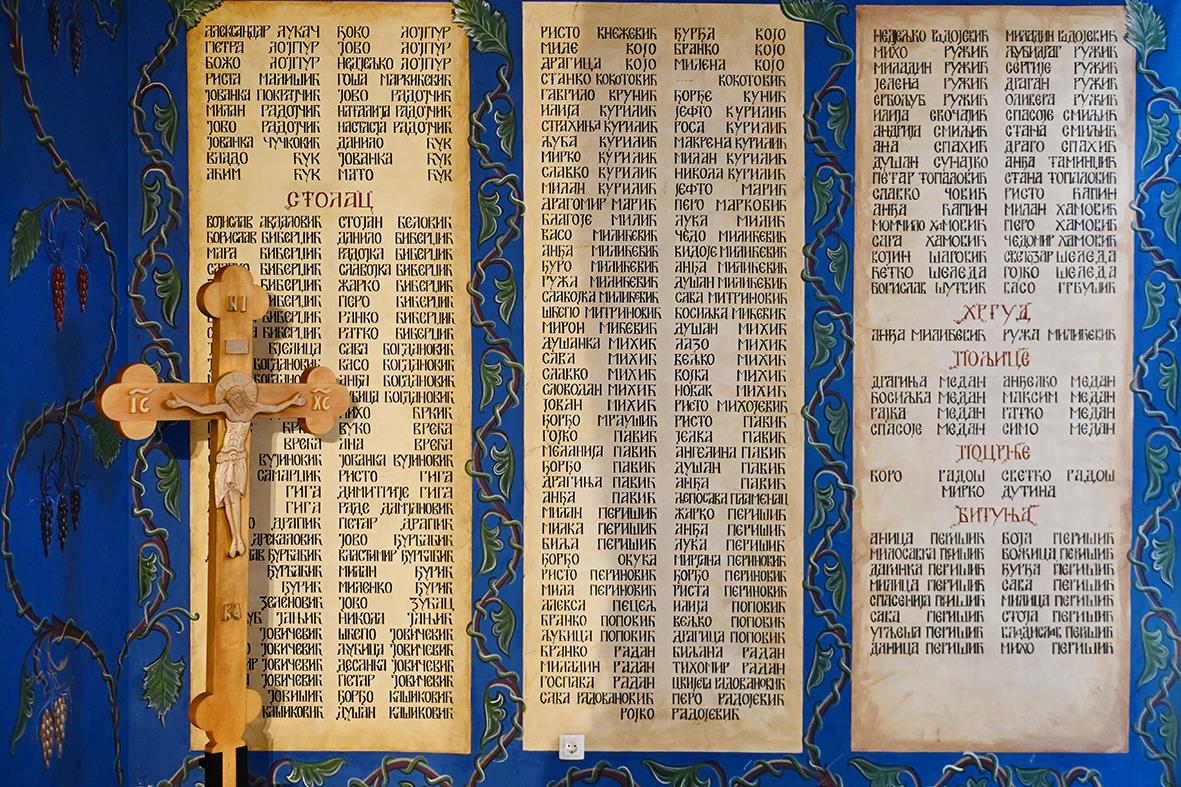 АЛЕКСАНДАР ЛУКАЧ ЂОКО ЛОЈПУР
ПЕТРА ЛОЈПУР ЈОВО ЛОЈПУР
БОЖО ЛОЈПУР НЕДЕЉКО ЛОЈПУР
РИСТА МАЛИШИЋ ГОША МАРКИЋЕВИЋ
ЈОВАНКА ПОКРАЈЧИЋ ЈОВО РАДОЈЧИЋ
МИЛАН РАДОЈЧИЋ НАТАЛИЈА РАДОЈЧИЋ
ЈОВО РАДОЈЧИЋ НАСТАСЈА РАДОЈЧИЋ
ЈОВАНКА ЧУЧКОВИЋ ДАНИЛО ЋУК
ВЛАДО ЋУК ЈОВАНКА ЋУК
АЋИМ ЋУК МАТО ЋУК
СТОЛАЦ
ВОЈИСЛАВ АВДАЛОВИЋ СТОЈАН БЕЛОВИЋ
БОРИСЛАВ БИБЕРЏИЋ ДАНИЛО БИБЕРЏИЋ
МАРА БИБЕРЏИЋ РАДОЈКА БИБЕРЏИЋ
БИБЕРЏИЋ СЛАВОЈКА БИБЕРЏИЋ
БИБЕРЏИЋ ЖАРКО БИБЕРЏИЋ
БИБЕРЏИЋ ПЕРО БИБЕРЏИЋ
БИБЕРЏИЋ РАНКО БИБЕРЏИЋ
БИБЕРЏИЋ РАТКО БИБЕРЏИЋ
БЈЕЛИЦА САВА БОГДАНОВИЋ
БОГДАНОВИЋ ВАСО БОГДАНОВИЋ
АНЂА БОГДАНОВИЋ
БОГДАНОВИЋ
БРКИЋ
ВУКО ВРЕЋА
ВРЕЋА АНА ВРЕЋА
ВУЈИНОВИЋ ЈОВАНКА ВУЈИНОВИЋ
САМАРЏИЋ РИСТО ГИГА
ГИГА ДИМИТРИЈЕ ГИГА
ГИГА РАДЕ ДАМЈАНОВИЋ
ДРАПИЋ ПЕТАР ДРАПИЋ
ЈОВО ЂУРЂАКИЋ
ЂУРЂАКИЋ ВЛАСТИМИР ЂУРЂАКИЋ
ЂУРЂАКИЋ МИЛАН ЂУРИЋ
ЂУРИЋ МИЛЕНКО ЂУРИЋ
ЗЕЛЕНОВИЋ ЈОКО ЗУКАЦ
ЈАЊИЋ НИКОЛА ЈАЊИЋ
ЈОВИЧЕВИЋ ШЋЕПО ЈОВИЧЕВИЋ
ЈОВИЧЕВИЋ ЉУБИЦА ЈОВИЧЕВИЋ
ЈОВИЧЕВИЋ ДЕСАНКА ЈОВИЧЕВИЋ
ЈОВИЧЕВИЋ ПЕТАР ЈОВИЧЕВИЋ
ЈОВИШИЋ ЂОРЂО КАШИКОВИЋ
КАШИКОВИЋ ДУШАН КАШИКОВИЋ
ІС НІ ХС
РИСТО КНЕЖЕВИЋ ЂУРЂА КОЈО
МИЛЕ КОЈО БРАНКО КОЈО
ДРАГИЦА КОЈО МИЛЕНА КОЈО
СТАНКО КОКОТОВИЋ КОКОТОВИЋ
ГАВРИЛО КРУНИЋ ЂОРЂЕ КУНИЋ
ИЛИЈА КУРИЛИЋ ЈЕФТО КУРИЛИЋ
СТРАХИЊА КУРИЛИЋ РОСА КУРИЛИЋ
ЉУБА КУРИЛИЋ МАКРЕНА КУРИЛИЋ
МИРКО КУРИЛИЋ МИЛАН КУРИЛИЋ
СЛАВКО КУРИЛИЋ НИКОЛА КУРИЛИЋ
МИЛАН КУРИЛИЋ ЈЕФТО МАРИЋ
ДРАГОМИР МАРИЋ ПЕРО МАРКОВИЋ
БЛАГОЈЕ МИЛИЋ ЛУКА МИЛИЋ
ВАСО МИЛИЋЕВИЋ ЧЕДО МИЛИЋЕВИЋ
АНЂА МИЛИЋЕВИЋ ВИДОЈЕ МИЛИЋЕВИЋ
ЂУРО МИЛИЋЕВИЋ АНЂА МИЛИЋЕВИЋ
РУЖА МИЛИЋЕВИЋ ДУШАН МИЛИЋЕВИЋ
СЛАВОЈКА МИЛИЋЕВИЋ САВА МИТРИНОВИЋ
ШЋЕПО МИТРИНОВИЋ ВОСИЉКА МИЋЕВИЋ
МИРОН МИЋЕВИЋ ДУШАН МИХИЋ
ДУШАНКА МИХИЋ ЛАЗО МИХИЋ
САВА МИХИЋ ВЕЉКО МИХИЋ
СЛАВКО МИХИЋ ВОЈКА МИХИЋ
СЛОБОДАН МИХИЋ НОВАК МИХИЋ
ЈОВАН МИХИЋ РИСТО МИХОЈЕВИЋ
ЂОРЂО МРАУШИЋ РИСТО ПАВИЋ
ГОЈКО ПАВИЋ ЈЕЛКА ПАВИЋ
МЕЛАНИЈА ПАВИЋ АНГЕЛИНА ПАВИЋ
ЂОРЂО ПАВИЋ ДУШАН ПАВИЋ
ДРАГИЊА ПАВИЋ АНЂА ПАВИЋ
АНЂА ПАВИЋ ЛЕПОСАВА ПЛАМЕНАЦ
МИЛАН ПЕРИШИЋ ЖАРКО ПЕРИШИЋ
МИЛКА ПЕРИШИЋ АНЂА ПЕРИШИЋ
БИЉА ПЕРИШИЋ ЛУКА ПЕРИШИЋ
ЂОРЂО ОКУКА МИРЈАНА ПЕРИНОВИЋ
РИСТО ПЕРИНОВИЋ ЂОРЂО ПЕРИНОВИЋ
МИЛА ПЕРИНОВИЋ РИСТА ПЕРИНОВИЋ
АЛЕКСА ПЕЦЕЉ ИЛИЈА ПОПОВИЋ
БРАНКО ПОПОВИЋ ВЕЉКО ПОПОВИЋ
ЉУБИЦА ПОПОВИЋ ДРАГИЦА ПОПОВИЋ
БРАНКО РАДАН БИЉАНА РАДАН
МИЛАДИН РАДАН ТИХОМИР РАДАН
ГОСПАВА РАДАН ЦВИЈЕТА РАДОВАНОВИЋ
САВА РАДОВАНОВИЋ ПЕРО РАДОЈЕВИЋ
РОЈКО РАДОЈЕВИЋ
НЕДЕЉКО РАДОЈЕВИЋ МИЛАДИН РАДОЈЕВИЋ
МИХО РУЖИЋ ЉУБИДРАГ РУЖИЋ
МИЛАДИН РУЖИЋ СЕРГИЈЕ РУЖИЋ
ЈЕЛЕНА РУЖИЋ ДРАГАН РУЖИЋ
СРБОЉУБ РУЖИЋ ОЛИВЕРА РУЖИЋ
ИЛИЈА СКОЧАЈИЋ СПАСОЈЕ СМИЉИЋ
АНДРИЈА СМИЉИЋ СТАНА СМИЉИЋ
АНА СПАХИЋ ДРАГО СПАХИЋ
ДУШАН СУНАЈКО АНЂА ТАМИНЏИЋ
ПЕТАР ТОПАЛОВИЋ СТАНА ТОПАЛОВИЋ
СЛАВКО ЧОВИЋ РИСТО ЋАПИН
АНЂА ЋАПИН МИЛАН ХАМОВИЋ
МОМЧИЛО ХАМОВИЋ ПЕРО ХАМОВИЋ
САРА ХАМОВИЋ ЧЕДОМИР ХАМОВИЋ
ВОЈИН ШАРОВИЋ СВЕТОЗАР ШЕЛЕДА
ЋЕТКО ШЕЛЕДА ГОЈКО ШЕЛЕДА
БОРИСЛАВ ШУТИЋ ВАСО ГРБУШИЋ
ХРГУД
АНЂА МИЛИЋЕВИЋ РУЖА МИЛИЋЕВИЋ
ПОЉИЦЕ
ДРАГИЊА МЕДАН АНЂЕЛКО МЕДАН
БОСИЉКА МЕДАН МАКСИМ МЕДАН
РАЈКА МЕДАН РАТКО МЕДАН
СПАСОЈЕ МЕДАН СИМО МЕДАН
ПОЦРЊЕ
БОРО РАДОШ СВЕТКО РАДОШ
МИРКО ДУТИНА
БИТУЊА
АНИЦА ПЕРИШИЋ БОЈА ПЕРИШИЋ
МИЛОСАВКА ПЕРИШИЋ БОЖИЦА ПЕРИШИЋ
ДАРИНКА ПЕРИШИЋ ЂУРЂА ПЕРИШИЋ
МИЛИЦА ПЕРИШИЋ САВА ПЕРИШИЋ
СПАСЕНИЈА ПЕРИШИЋ МИЛИЦА ПЕРИШИЋ
САВА ПЕРИШИЋ СТОЈА ПЕРИШИЋ
УГЉЕША ПЕРИШИЋ ВЛАДИСЛАВ ПЕРИШИЋ
ДАНИЦА ПЕРИШИЋ МИХО ПЕРИШИЋ